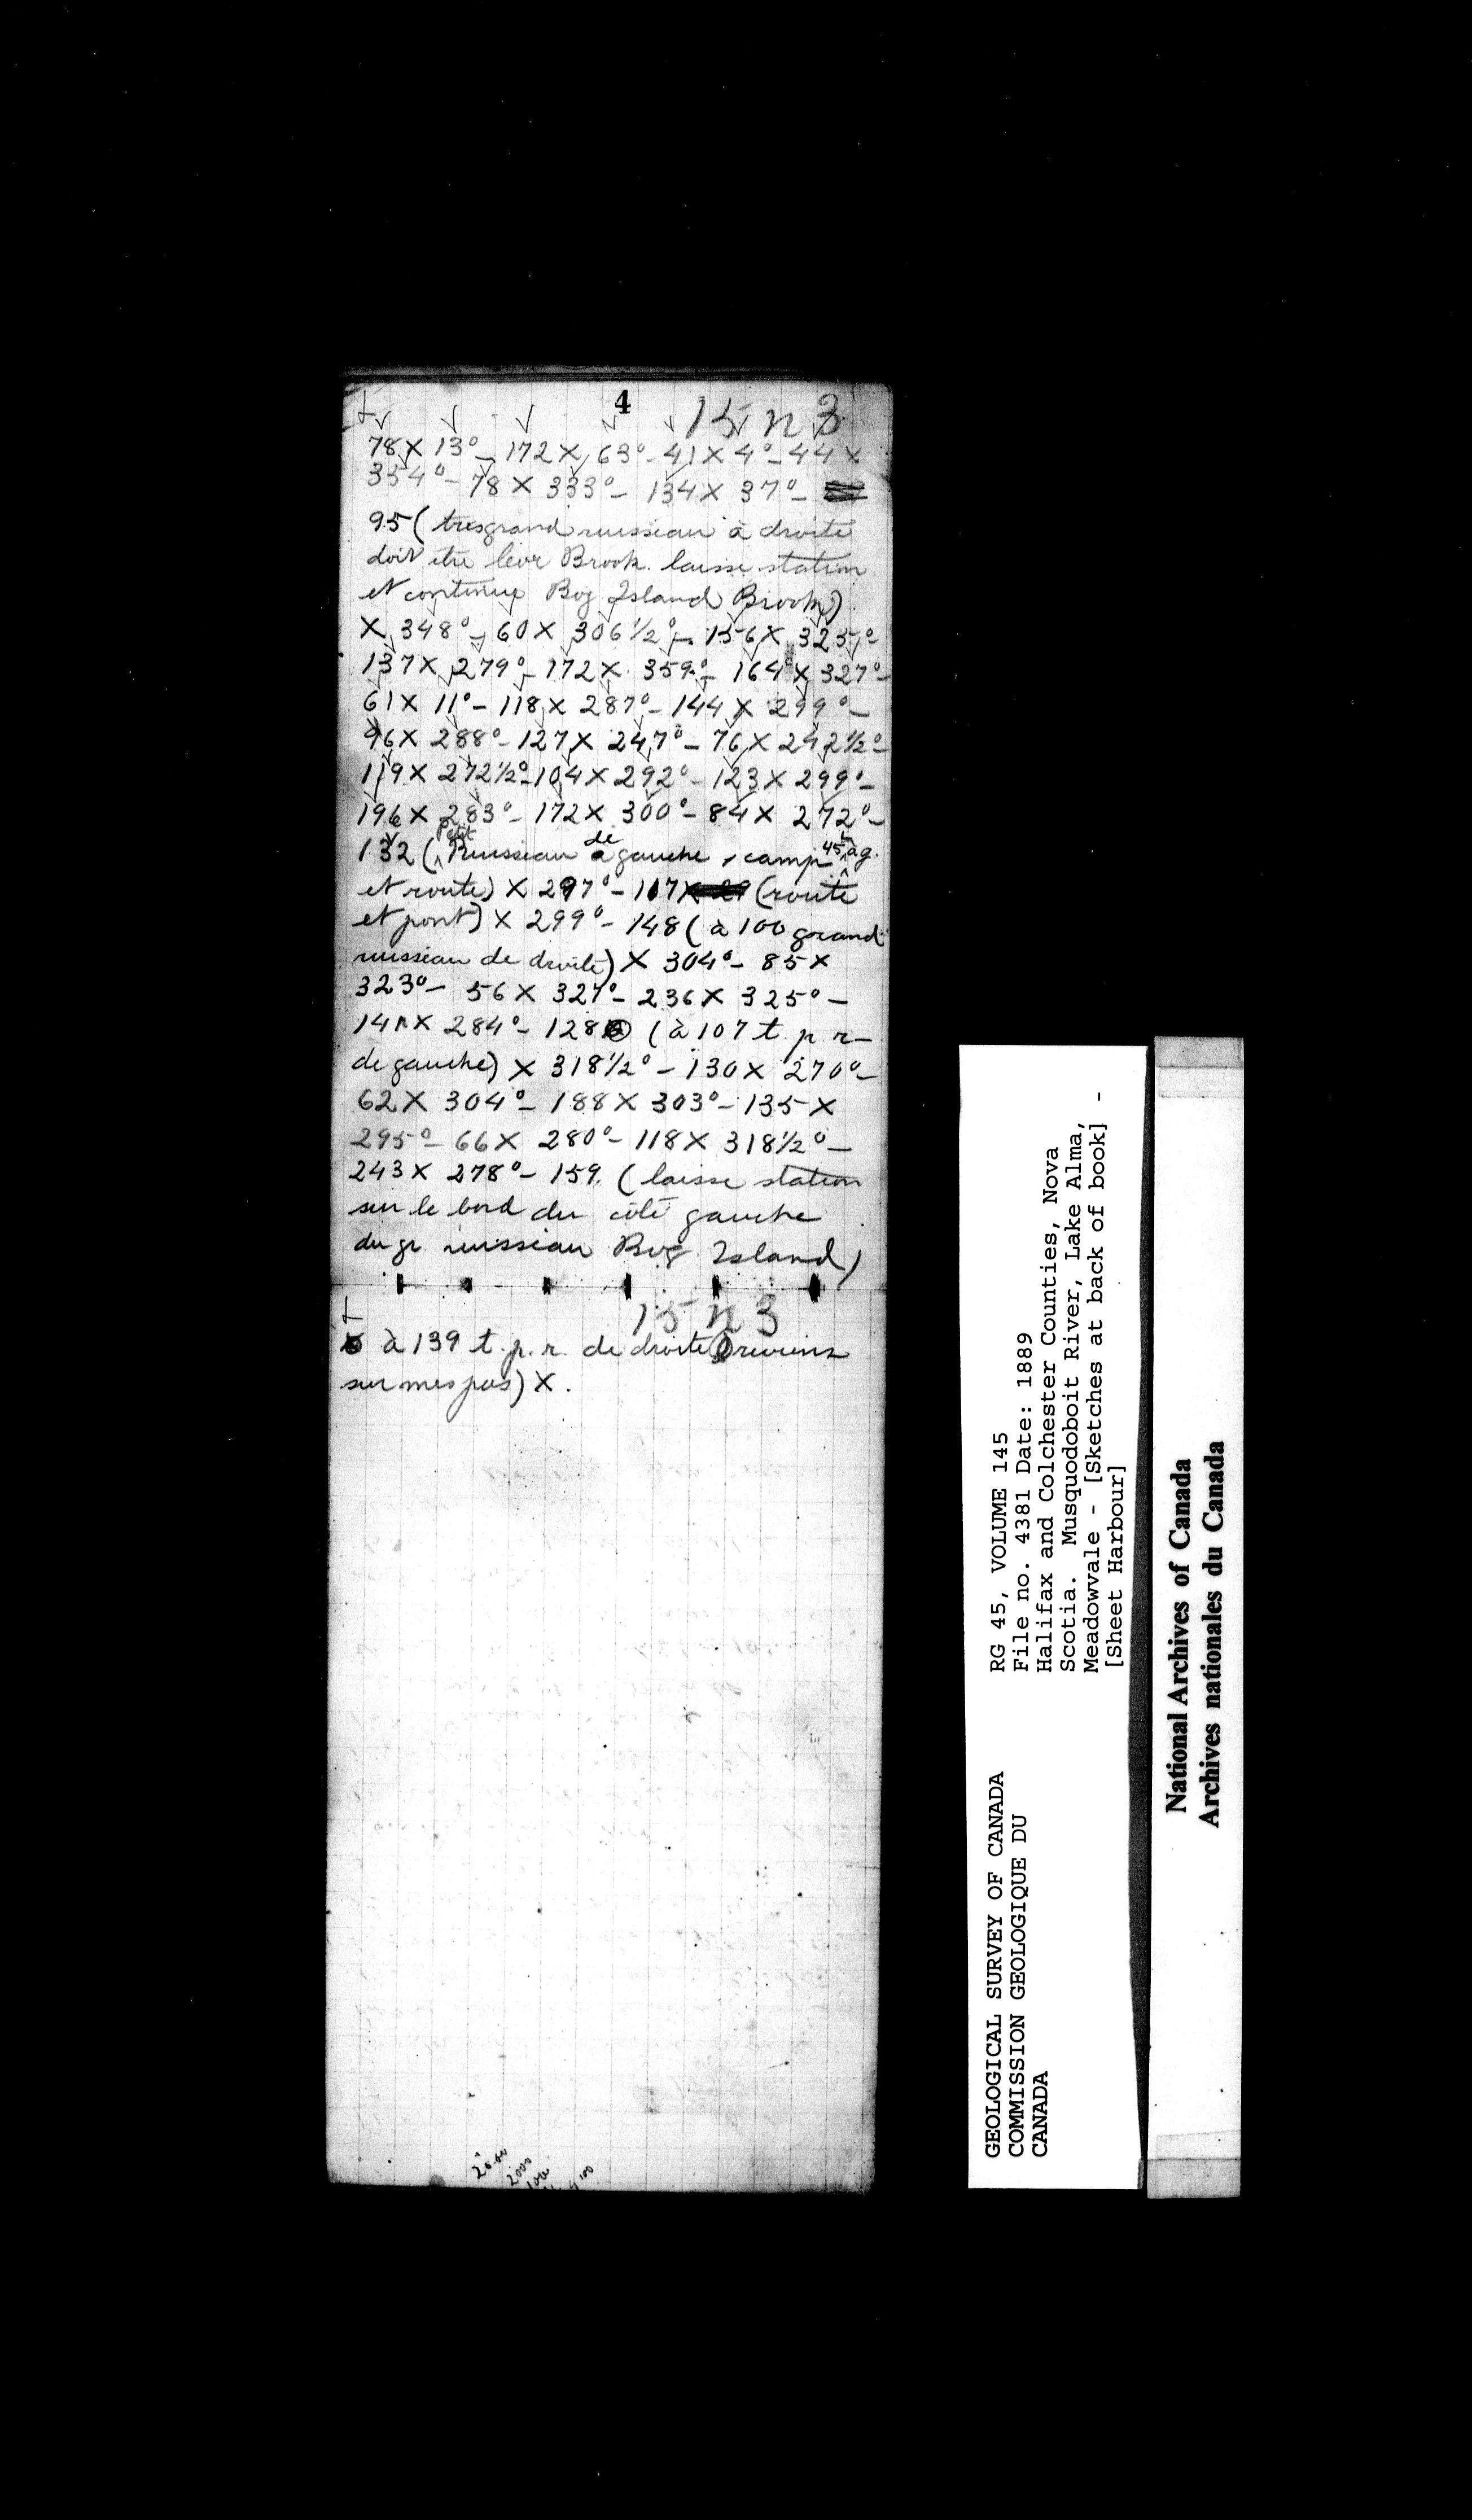 4
15 n 3
78 X 13° - 172 X 63° - 41 X 4° - 44 X
334° - 78 X 333° - 134 X 37° -
95 (tres grand ruisseau à droite
doit etre leur Brook. laisse station
et continue Bog Island Brook)
X 348° - 60 X 306 1/2° - 156 X 325° -
137 X 279° - 172 X 359° - 164 X 327° -
61 X 11° - 118 X 287° - 144 X 299° -
96 X 288° - 127 X 247° - 76 X 242 1/2° -
119 X 272 1/2° - 104 X 292° - 123 X 299° -
196 X 283° - 172 X 300° - 84 X 272° -
132 (petit Ruisseau de gauche, camp 45 à g.
et route) X 297° - 107 (route
et pont) X 299° - 148 (à 100 grand
ruisseau de droite) X 304° - 85 X
323° - 56 X 327° - 236 X 325° -
141 X 284° - 128 (à 107 t. p. r -
de gauche) X 318 1/2° - 130 X 270° -
62 X 304° - 188 X 303° - 135 X
295° - 66 X 280° - 118 X 318 1/2° -
243 X 278° - 159. (laisse station
sur le bord du côté gauche
du gr ruisseau Bog Island)
15 n 3
à 139 t. p. r. de droite reviens
sur mes pas) X.
2000
GEOLOGICAL SURVEY OF CANADA
COMMISSION GEOLOGIQUE DU
CANADA
RG 45, VOLUME 145
File no. 4381 Date: 1889
Halifax and Colchester Counties, Nova
Scotia. Musquodoboit River, Lake Alma,
Meadowvale - [Sketches at back of book] -
[Sheet Harbour]
National Archives of Canada
Archives nationales du Canada